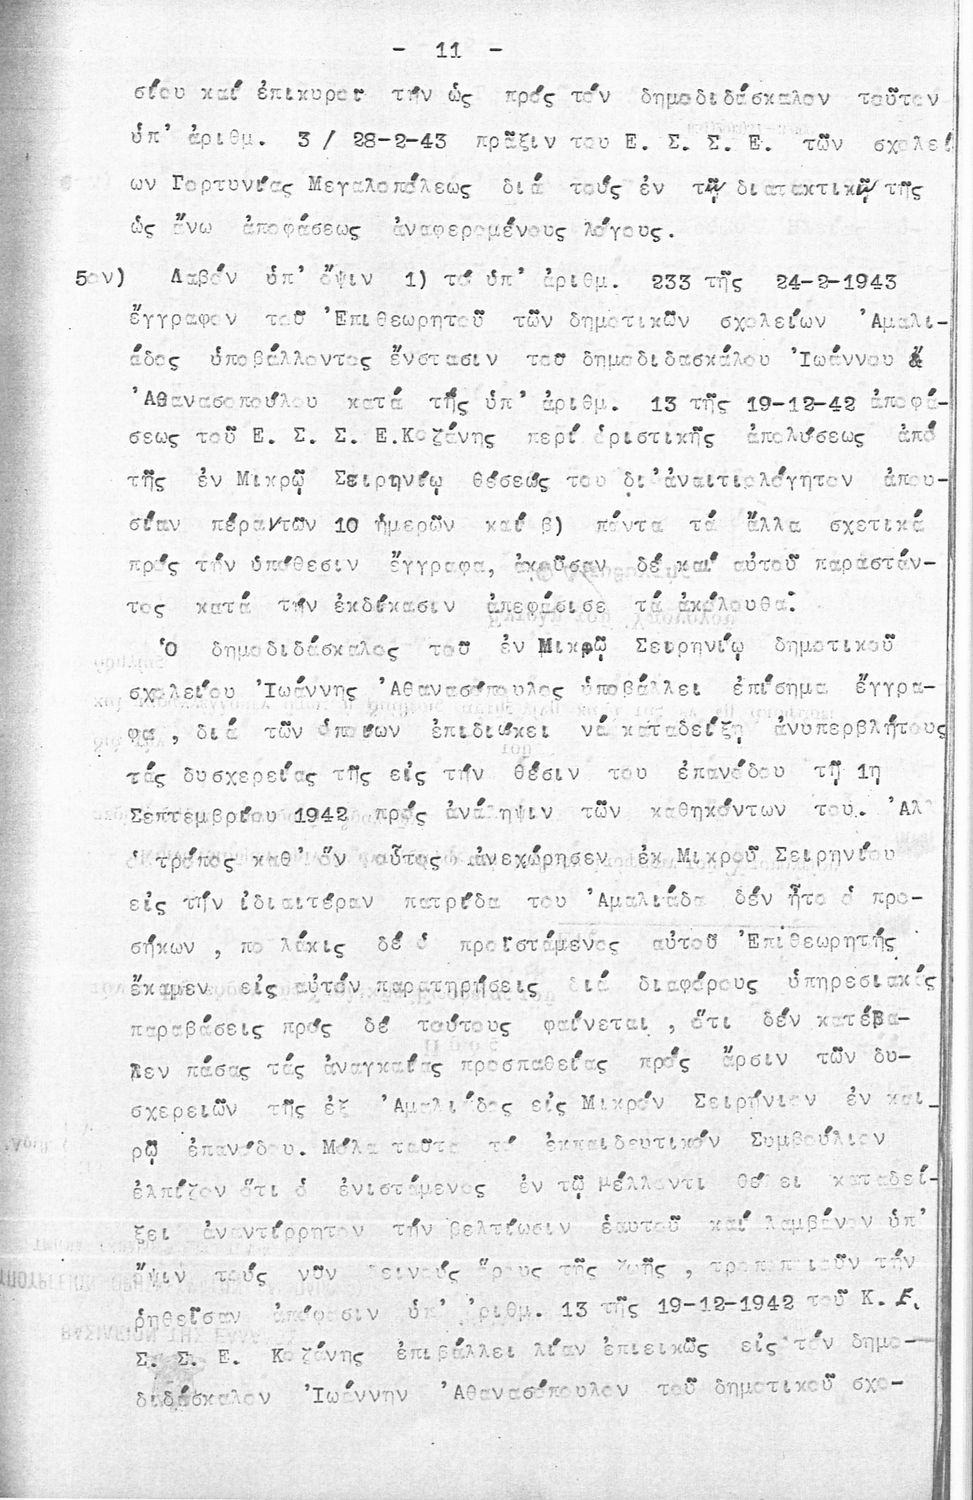 - 11 -
σίου καί ἐπικυροῖ τήν ὡς πρός τόν δημοδιδάσκαλον τοῦτον
ὑπ' ἀριθμ. 3 / 28-2-43 πρᾶξιν του Ε. Σ. Σ. Ε. τῶν σχολεί
ων Γορτυνίας Μεγαλοπόλεως διά τούς ἐν τῇ διατακτικῇ τῆς
ὡς ἄνω ἀποφάσεως ἀναφερομένους λόγους.
5ον) Λαβόν ὑπ' ὄψιν 1) τό ὑπ' ἀριθμ. 233 τῆς 24-2-1943
ἔγγραφον τοῦ Ἐπιθεωρητοῦ τῶν δημοτικῶν σχολείων Ἀμαλι-
άδος ὑποβάλλοντος ἔνστασιν τοῦ δημοδιδασκάλου Ἰωάννου
Ἀθανασοπούλου κατά τῆς ὑπ' ἀριθμ. 13 τῆς 19-12-42 ἀποφά-
σεως τοῦ Ε. Σ. Σ. Ε.Κοζάνης περί ὁριστικῆς ἀπολύσεως ἀπό
τῆς ἐν Μικρῷ Σειρηνίῳ θέσεώς του δι'ἀναιτιολόγητον ἀπου-
σίαν πέραν τῶν 10 ἡμερῶν καί β) πάντα τά ἄλλα σχετικά
πρός τήν ὑπόθεσιν ἔγγραφα, ἀκοῦσαν δέ καί αὐτοῦ παραστάν-
τος κατά τήν ἐκδίκασιν ἀπεφάσισε τά ἀκόλουθα:
Ὁ δημοδιδάσκαλος τοῦ ἐν Μικρῷ Σειρηνίῳ δημοτικοῦ
σχολείου Ἰωάννης Ἀθανασόπουλος ὑποβάλλει ἐπίσημα ἔγγρα-
φα , διά τῶν ὁποίων ἐπιδιώκει νά καταδείξῃ ἀνυπερβλήτους
τάς δυσχερείας τῆς εἰς τήν θέσιν του ἐπανόδου τῇ 1η
Σεπτεμβρίου 1942 πρός ἀνάληψιν τῶν καθηκόντων του. Ἀλλ
ὁ τρόπος καθ' ὅν οὗτος ἀνεχώρησεν ἐκ Μικροῦ Σειρηνίου
εἰς τήν ἰδιαιτέραν πατρίδα του Ἀμαλιάδα δέν ἦτο ὁ προ-
σήκων , πολλάκις δέ ὁ προϊστάμενος αὐτοῦ Ἐπιθεωρητής
ἔκαμεν εἰς αὐτόν παρατηρήσεις διά διαφόρους ὑπηρεσιακάς
παραβάσεις πρός δέ τούτους φαίνεται , ὅτι δέν κατέβα-
λεν πάσας τάς ἀναγκαίας προσπαθείας πρός ἄρσιν τῶν δυ-
σχερειῶν τῆς ἐξ Ἀμαλιάδος εἰς Μικρόν Σειρήνιον ἐν και_
ρῷ ἐπανόδου. Μόλα ταῦτα τό ἐκπαιδευτικόν Συμβούλιον
ἐλπίζον ὅτι ὁ ἐνιστάμενος ἐν τῷ μέλλοντι θέλει καταδεί-
ξει ἀναντίρρητον τήν βελτίωσιν ἑαυτοῦ καί λαμβάνον ὑπ'
ὄψιν τούς νῦν δεινούς ὅρους τῆς ζωῆς , τροποποιοῦν τήν
ῥηθεῖσαν ἀπόφασιν ὑπ' ἀριθμ. 13 τῆς 19-12-1942 τοῦ Κ. Ε.
Σ. Σ. Ε. Κοζάνης ἐπιβάλλει λίαν ἐπιεικῶς εἰς τόν δημο-
διδάσκαλον Ἰωάννην Ἀθανασόπουλον τοῦ δημοτικοῦ σχο-